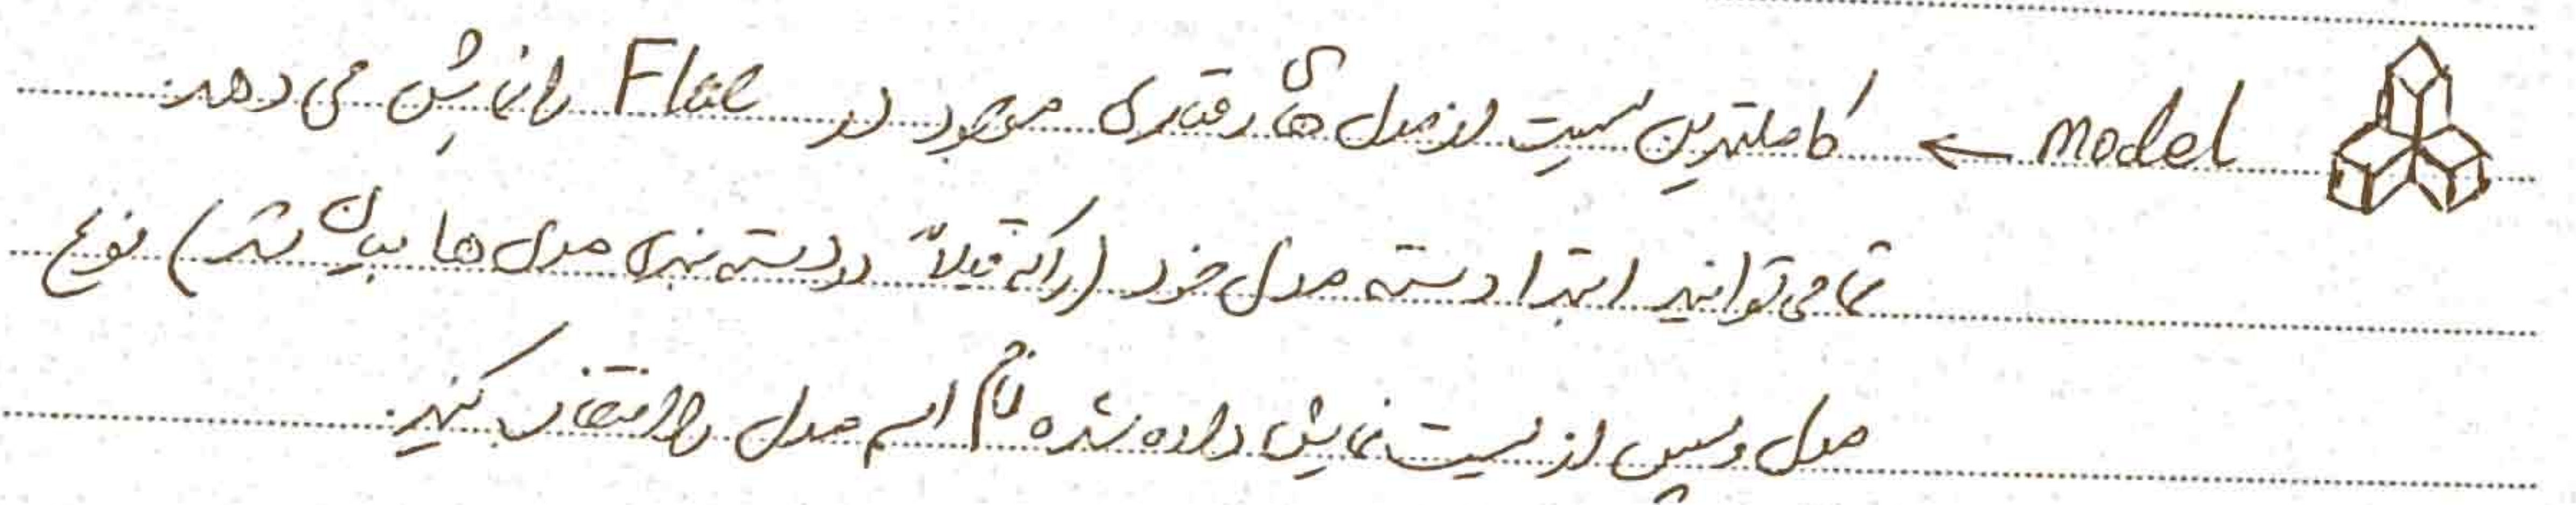 model ← کاملترین لیست از مدل های رفتاری موجود در Flac را نمایش می دهد.
شما می توانید ابتدا دسته مدل خود (را که قبلاً در دسته بندی مدل ها بیان شد) نوع
مدل و سپس از لیست نمایش داده شده اسم مدل را انتخاب کنید.